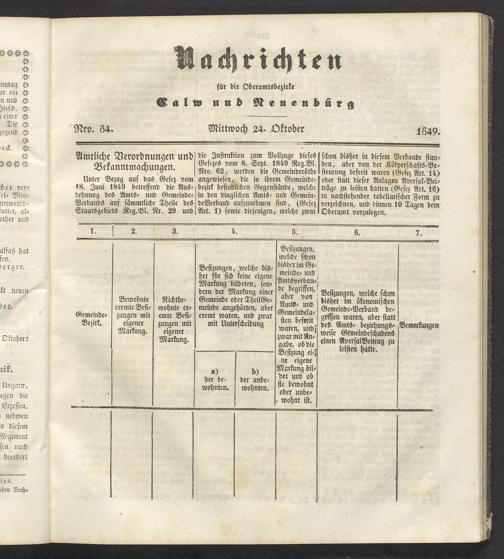 Nachrichten
für die Oberamtsbezirke
Calw und Neuenbürg
Nro. 84. Mittwoch 24. Oktober 1849.
Amtliche Verordnungen und
Bekanntmachungen.
Unter Bezug auf das Gesez vom
18. Juni 1849 betreffend die Aus-
dehnung des Amts- und Gemeinde-
Verbands auf sämmtliche Theile des
Staatsgebiets Reg.Bl. Nr. 29 und
die Instruktion zum Vollzuge dieses
Gesezes vom 8. Sept. 1849 Reg.Bl.
Nro. 62, werden die Gemeinderäthe
angewiesen, die in ihrem Gemeinde-
bezirk befindlichen Gegenstände, welche
in den dinglichen Amts- und Gemein-
deVerband aufzunehmen sind, (Gesez
Art. 1) sowie diejenigen, welche zwar
schon bisher in diesem Verbande stan-
den, aber von der Körperschafts-Be-
steurung befreit waren (Gesez Art. 14)
oder statt dieser Anlagen Aversal-Bei-
träge zu leisten hatten (Gesez Art. 16)
in nachstehender tabellarischer Form zu
verzeichnen, und binnen 10 Tagen dem
Oberamt vorzulegen.
1. 2. 3. 4. 5. 6. 7.
Gemeinde-
Bezirk.
Bewohnte
exemte Besi-
zungen mit
eigener
Markung.
Nichtbe-
wohnte ex-
emte Besi-
zungen mit
eigener
Markung.
Besizungen, welche bis-
her für sich keine eigene
Markung bildeten, son-
dern der Markung einer
Gemeinde oder TheilGe-
meinde angehörten, aber
exemt waren, und zwar
mit Unterscheidung
a)
der be-
wohnten.
b)
der unbe-
wohnten.
Besizungen,
welche schon
bisher im Ge-
meinde- und
Amtsverban-
de begriffen,
aber von
Amts- und
Gemeindela-
sten befreit
waren, und
zwar mit An-
gabe, ob die
Besizung ei-
ne eigene
Markung bil-
det und ob
sie bewohnt
oder unbe-
wohnt ist.
Besizungen, welche schon
bisher im ökonomischen
Gemeinde-Verband be-
griffen waren, aber statt
des Amts- beziehungs-
weise Gemeindeschadens
einen AversalBeitrag zu
leisten hatte.
Bemerkungen